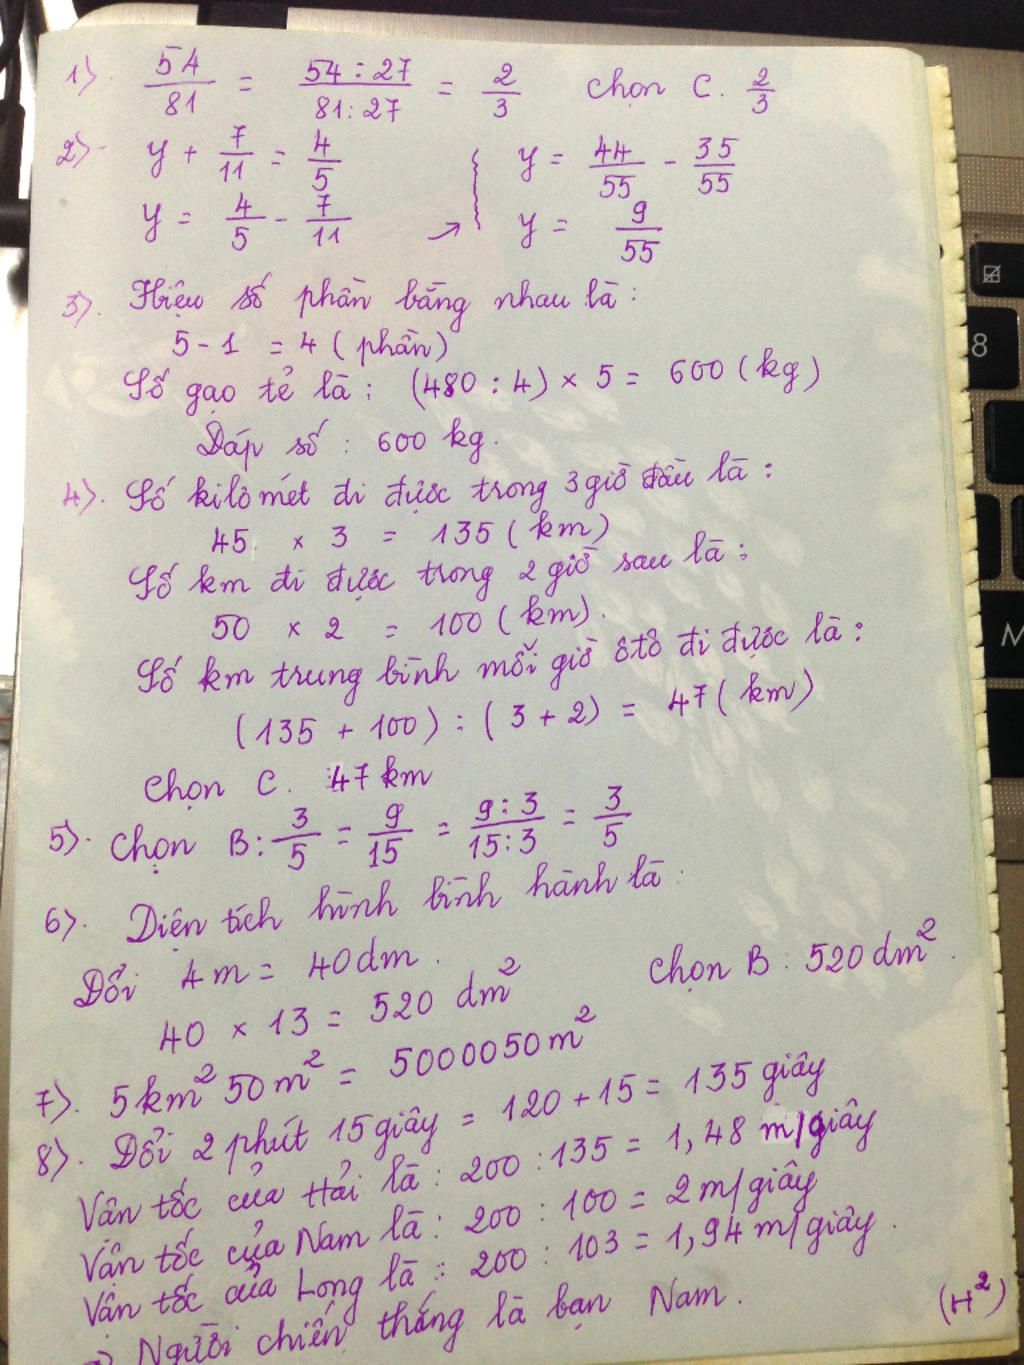 1). 54/81 = 54 : 27/81 : 27 = 2/3 Chọn C. 2/3
2)- y + 7/11 = 4/5 y = 44/55 - 35/55
y = 4/5 - 7/11 → y = 9/55
3). Hiệu số phần bằng nhau là :
5 - 1 = 4 ( phần)
Số gạo tẻ là : (480 : 4) × 5 = 600 (kg)
Đáp số : 600 kg.
4). Số kilô mét đi được trong 3 giờ đầu là :
45 × 3 = 135 ( km)
Số km đi được trong 2 giờ sau là :
50 × 2 = 100 ( km).
Số km trung bình mỗi giờ ôtô đi được là :
(135 + 100) : ( 3 + 2) = 47 ( km)
Chọn C. 47 km
5). Chọn B : 3/5 = 9/15 = 9 : 3/15 : 3 = 3/5
6). Diện tích hình bình hành là :
Đổi 4 m = 40 dm .
40 × 13 = 520 dm² Chọn B : 520 dm² .
7). 5 km² 50 m² = 5000050 m²
8). Đổi 2 phút 15 giây = 120 + 15 = 135 giây
Vận tốc của Hải là : 200 : 135 = 1,48 m/giây
Vận tốc của Nam là : 200 : 100 = 2 m/giây
Vận tốc của Long là : 200 : 103 = 1,94 m/giây .
Người chiến thắng là bạn Nam . (H²)
8
M